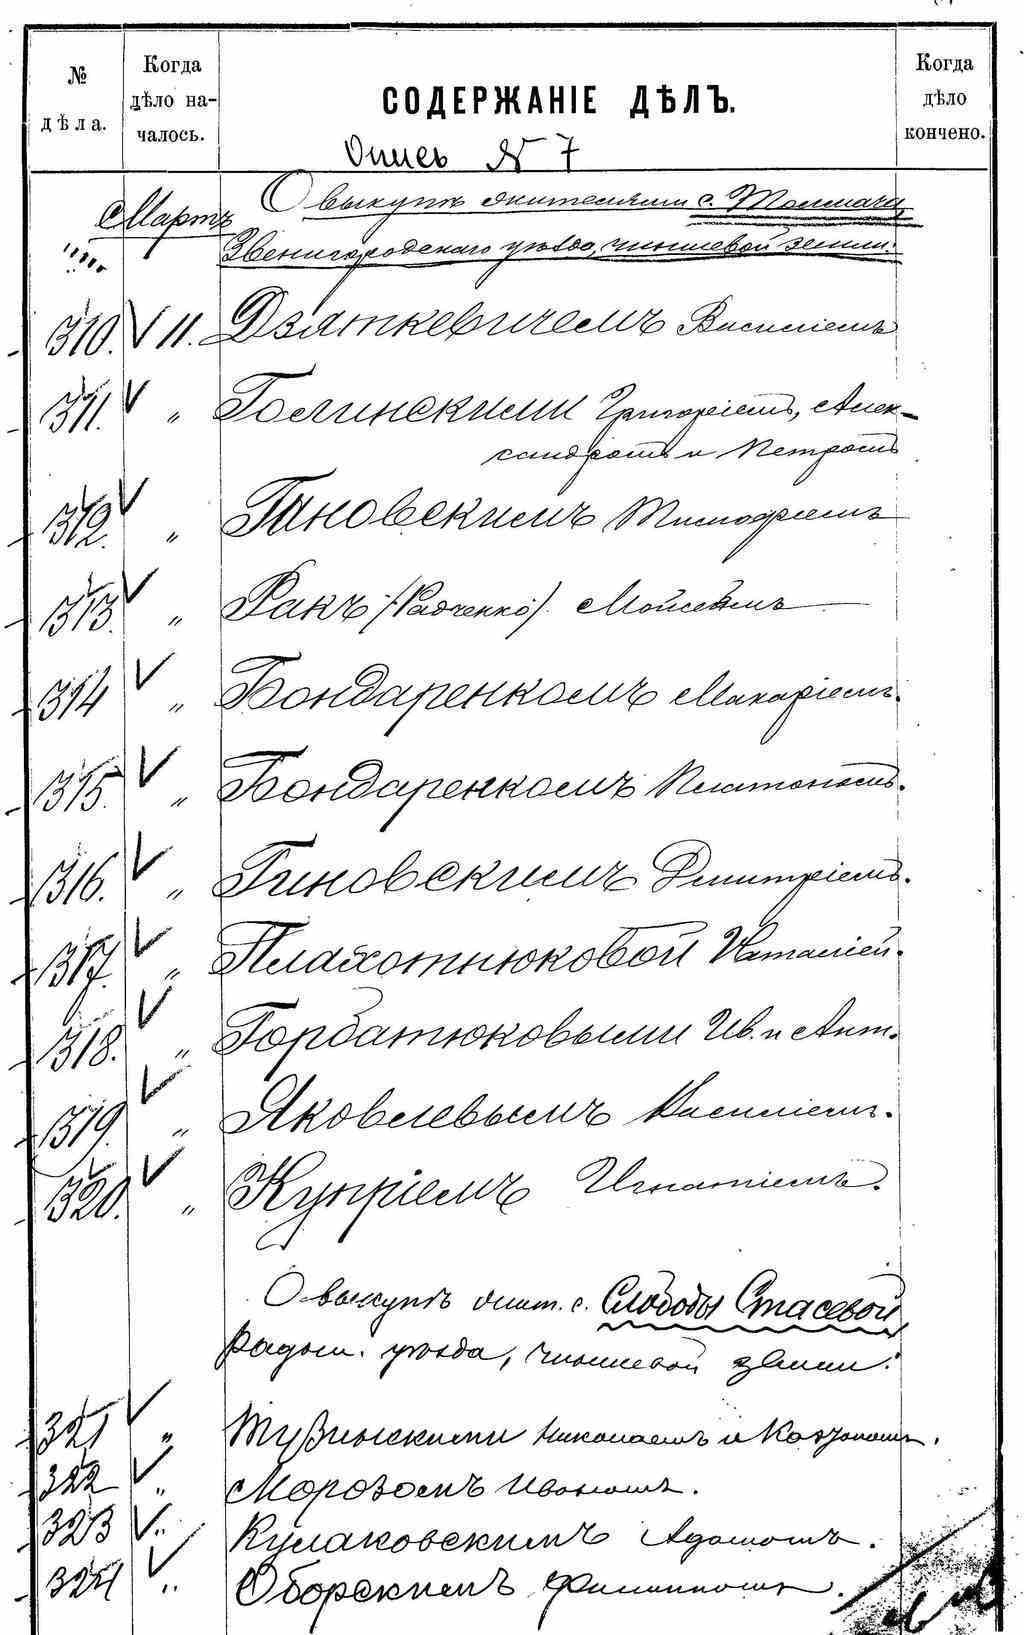 № дѣла.
Когда дѣло на-чалось.
СОДЕРЖАНІЕ ДѢЛЪ.
Когда дѣло кончено.
Опись № 7
Мартъ
О выкупѣ жителями с. Толмача,
Звенигородскаго уѣзда, чиншевой земли:
310. 11. Дзяткевичемъ Василіемъ
311. " Голинскими Григоріемъ, Алек-
сандромъ и Петромъ
312. " Гановскимъ Тимофѣемъ
313. " Ракъ (Радченко) Мойсѣемъ
314 " Бондаренкомъ Макаріемъ.
315. " Бондаренкомъ Платономъ.
316. " Гиновскимъ Дмитріемъ.
317. " Плахотнюковой Наталіей.
318. " Горбатюковыми Ив. и Ант.
319. " Яковлевымъ Василіемъ.
320. " Купріемъ Игнатіемъ.
О выкупѣ жит. с. Слободы Стасевой
Радом. уѣзда, чиншевой земли:
321 " Николаемъ и
322 " Морозомъ Иваномъ.
323 " Кулаковскимъ Адамомъ.
324 " Оборскимъ Филиппомъ.